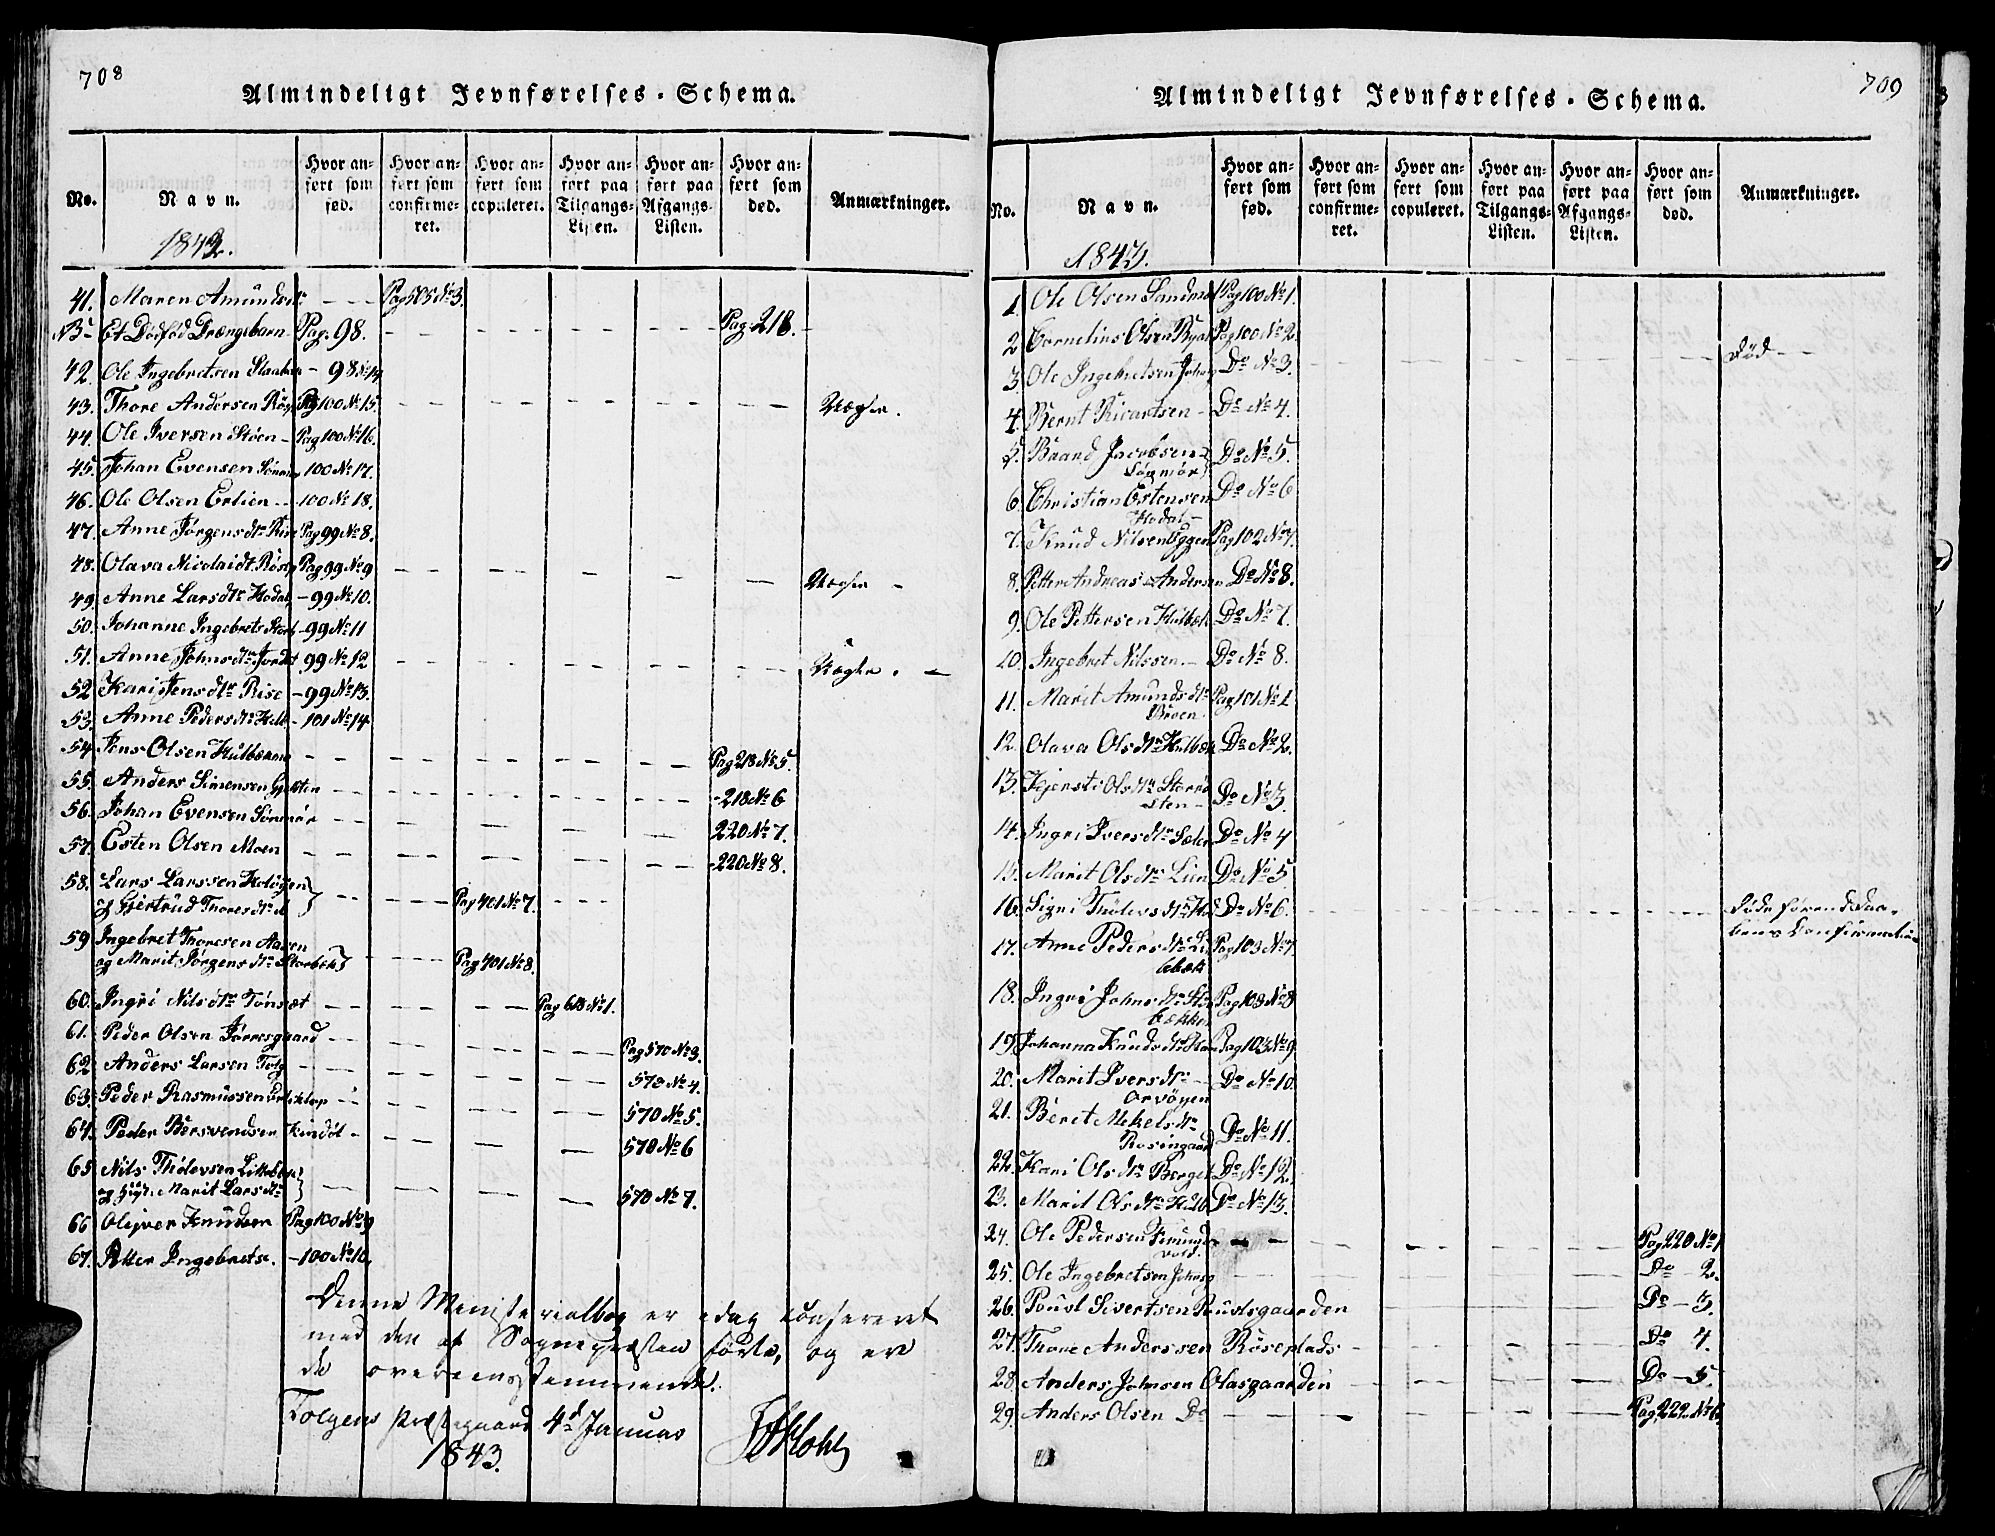 708
Almindeligt Jevnførelses-Schema.
No.
Navn.
Hvor anført som fød.
Hvor anført som confirmeret.
Hvor anført som copuleret.
Hvor anført paa Tilgangs-Listen.
Hvor anført paa Afgangs-Listen.
Hvor anført som død.
Anmærkninger.
1842.
41. Maren Amundsdtr - - - Pag 505 No 3.
NB - Et Dødfød Drængebarn Pag. 98. - - - - - - Pag. 218. -
42. Ole Ingebretsen - 98 No 14
43. Thore Andersen Pag 100 No 15. - - - - - - Uægte.
44. Ole Iversen Støen - Pag 100 No 16.
45. Johan Evensen 100 No 17.
46. Ole Olsen Erlien - - 100 No 18.
47. Anne Jørgensdtr Rise Pag 99 No 8.
48. Olava Nicolaidt Pag 99 No 9 - - - - - Uægte -
49. Anne Larsdtr Hodal - 99 No 10.
50. Johanne Ingebrets - 99 No 11
51. Anne Johnsdtr Jordet 99 No 12 - - - - - Uægte. -
52 Kari Jensdtr Rise - 99 No 13.
53. Anne Pedersdtr - 101 No 14
54 Jens Olsen - - - - - Pag 218 No 5.
55. Anders Simensen - - - - - - 218 No 6
56. Johan Evensen Sømmør - - - - - 220 No 7.
57. Esten Olsen Moen - - - - - - 220 No 8.
58. Lars Larssen
og Gjertrud Thoresdtr - - - - Pag 401 No 7. - - -
59 Ingebret Thoresen Aasen
og Marit Jørgensdtr Storbæk - - - - Pag 401 No 8.
60. Ingri Nilsdtr Tønsæt - - - - Pag 618 No 1.
61. Peder Olsen - - - - Pag 570 No 3.
62 Anders Larsen Tolg - - - - 570 No 4.
63. Peder Rasmussen - - - - 570 No 5.
64. Peder Bersvendsen Kindøl - - - - 570 No 6
65 Nils Thølevsen
og Marit Larsdtr - - - - 570 No 7.
66 Olijver Knudsen Pag 100 No 19
67. Petter Ingebrets. - 100 No 10.
Denne Ministerialbog er idag confereret
med den af Sognepræsten førte, og er
de overeensstemmende.
Tolgens Præstegaard 4d Januar
1843.
709
Almindeligt Jevnførelses-Schema.
No.
Navn.
Hvor anført som fød.
Hvor anført som confirmeret.
Hvor anført som copuleret.
Hvor anført paa Tilgangs-Listen.
Hvor anført paa Afgangs-Listen.
Hvor anført som død.
Anmærkninger.
1843.
1. Ole Olsen Pag 100 No 1.
2 Cornelius Olsen Pag 100 No 2.
3. Ole Ingebretsen Do No 3. - - - - - - død - -
4. Bernt Ricartsen - Do No 4.
5. Baard Jacobsen - Do No 5.
Sømmør
6. Christian Estensen Do No 6
Hodal -
7. Knud Nilsen Eggen Pag 102 No 7.
8. Petter Andreas Andersen Do No 8.
9. Ole Pettersen Do No 7.
10. Ingebret Nilssen. - Do No 8.
11. Marit Amundsdtr Pag 101 No 1
Broen.
12. Olava Olsdtr Do No 2.
13. Kjersti Olsdtr Do No 3.
14. Ingri Iversdtr Do No 4
15. Marit Olsdtr Lien Do No 5
16. Sigri Thølevsdtr Do No 6. - - - - - - Døde førend Daabens Confirmation
17. Anne Pedersdtr Pag 103 No 7.
18. Ingri Johnsdtr Pag 103 No 8
19. Johanna Knudsdtr Pag 103 No 9
20. Marit Iversdtr - Do No 10.
Orvøyen
21. Beret Mikelsdtr
Rosingaard Do No 11.
22. Kari Olsdtr Berget Do No 12.
23. Marit Olsdtr Do No 13.
24. Ole Pedersen - - - - - - Pag 220 No 1
25. Ole Ingebretsen - - - - Do - 2.
26. Pouvl Sivertsen Pouvlsgaarden Do - 3.
27. Thore Anderssen Røseplads - - - - Do 4.
28. Anders Johnsen Olasgaarden - - - - Do - 5.
29. Anders Olsen Do - - - - - - Pag 222 No 6.